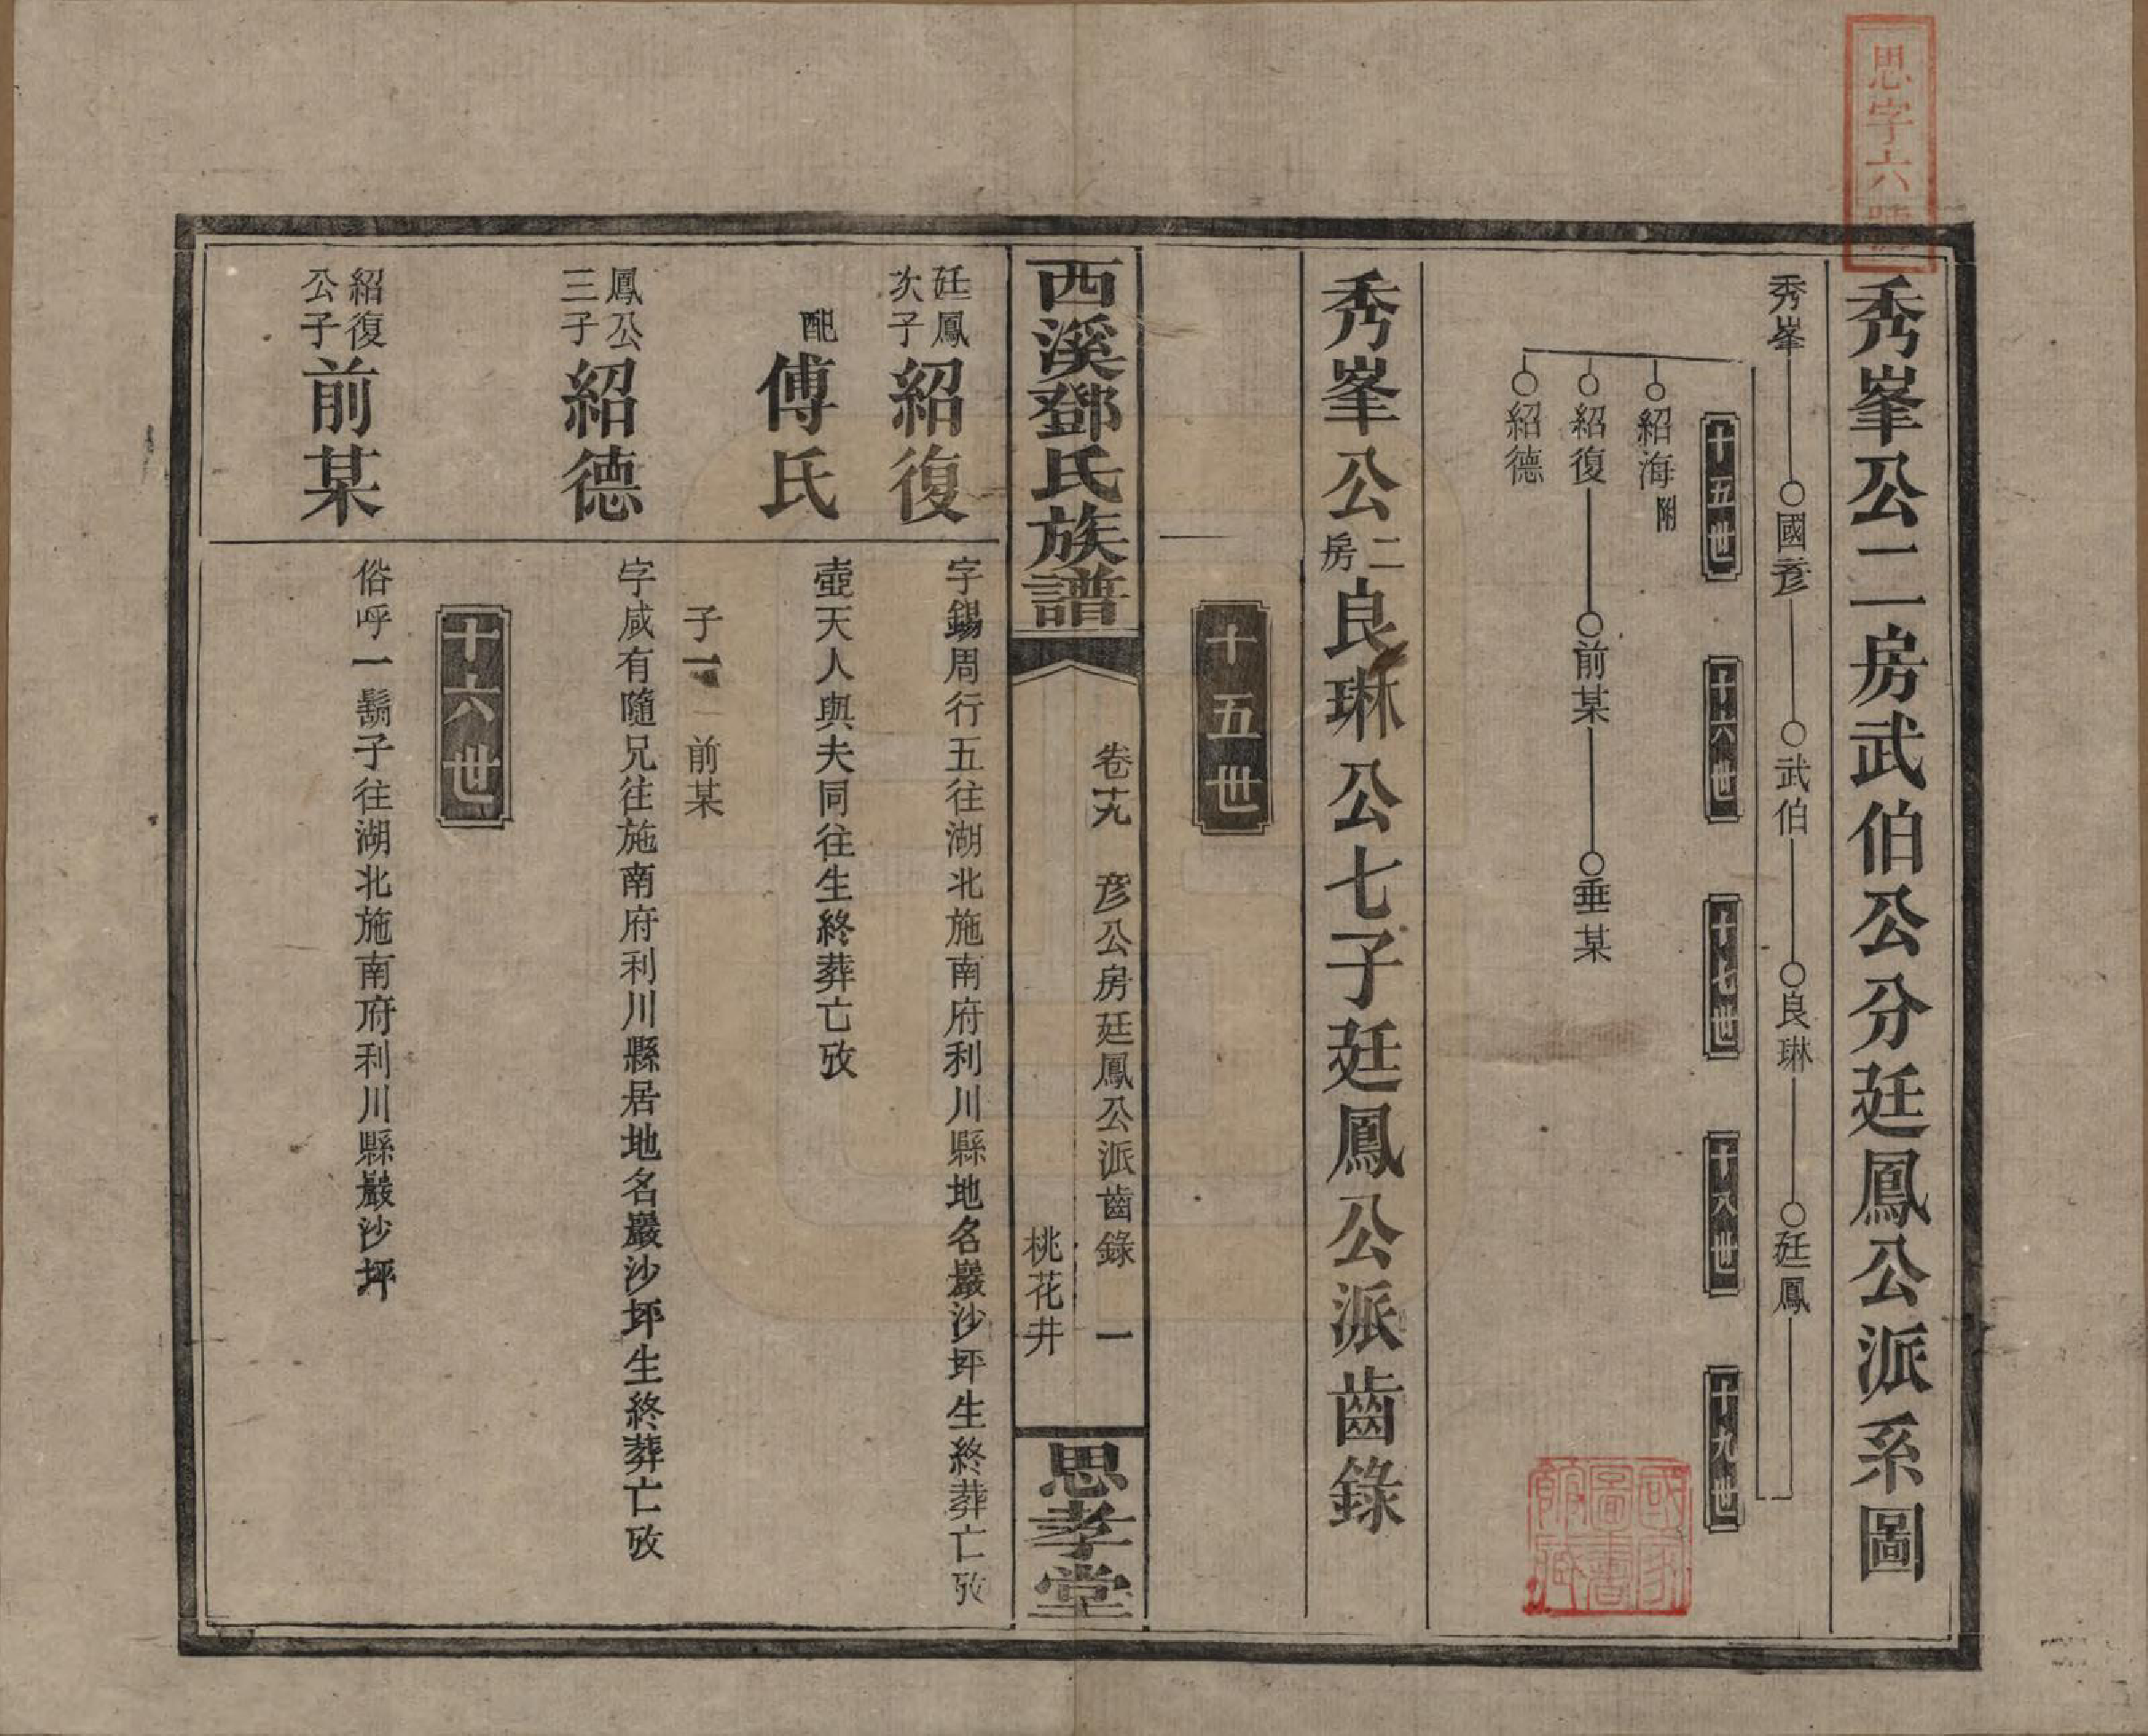 思字六號
秀峯公二房武伯公分廷鳳公派系圖
秀峯 國彥 武伯 良琳 廷鳳
十五世 十六世 十七世 十八世 十九世
紹海附
紹復 前某 垂某
紹德
國家圖書館藏
秀峯公二房良琳公七子廷鳳公派齒錄
十五世
西溪鄧氏族譜 卷十九 彥公房廷鳳公派齒錄 一 桃花井 思孝堂
廷鳳次子紹復 字錫周行五往湖北施南府利川縣地名巖沙坪生終葬亡攷
配傅氏 壼天人與夫同往生終葬亡攷
子一 前某
鳳公三子紹德 字咸有隨兄往施南府利川縣居地名巖沙坪生終葬亡攷
十六世
紹復公子前某 俗呼一鬍子往湖北施南府利川縣巖沙坪